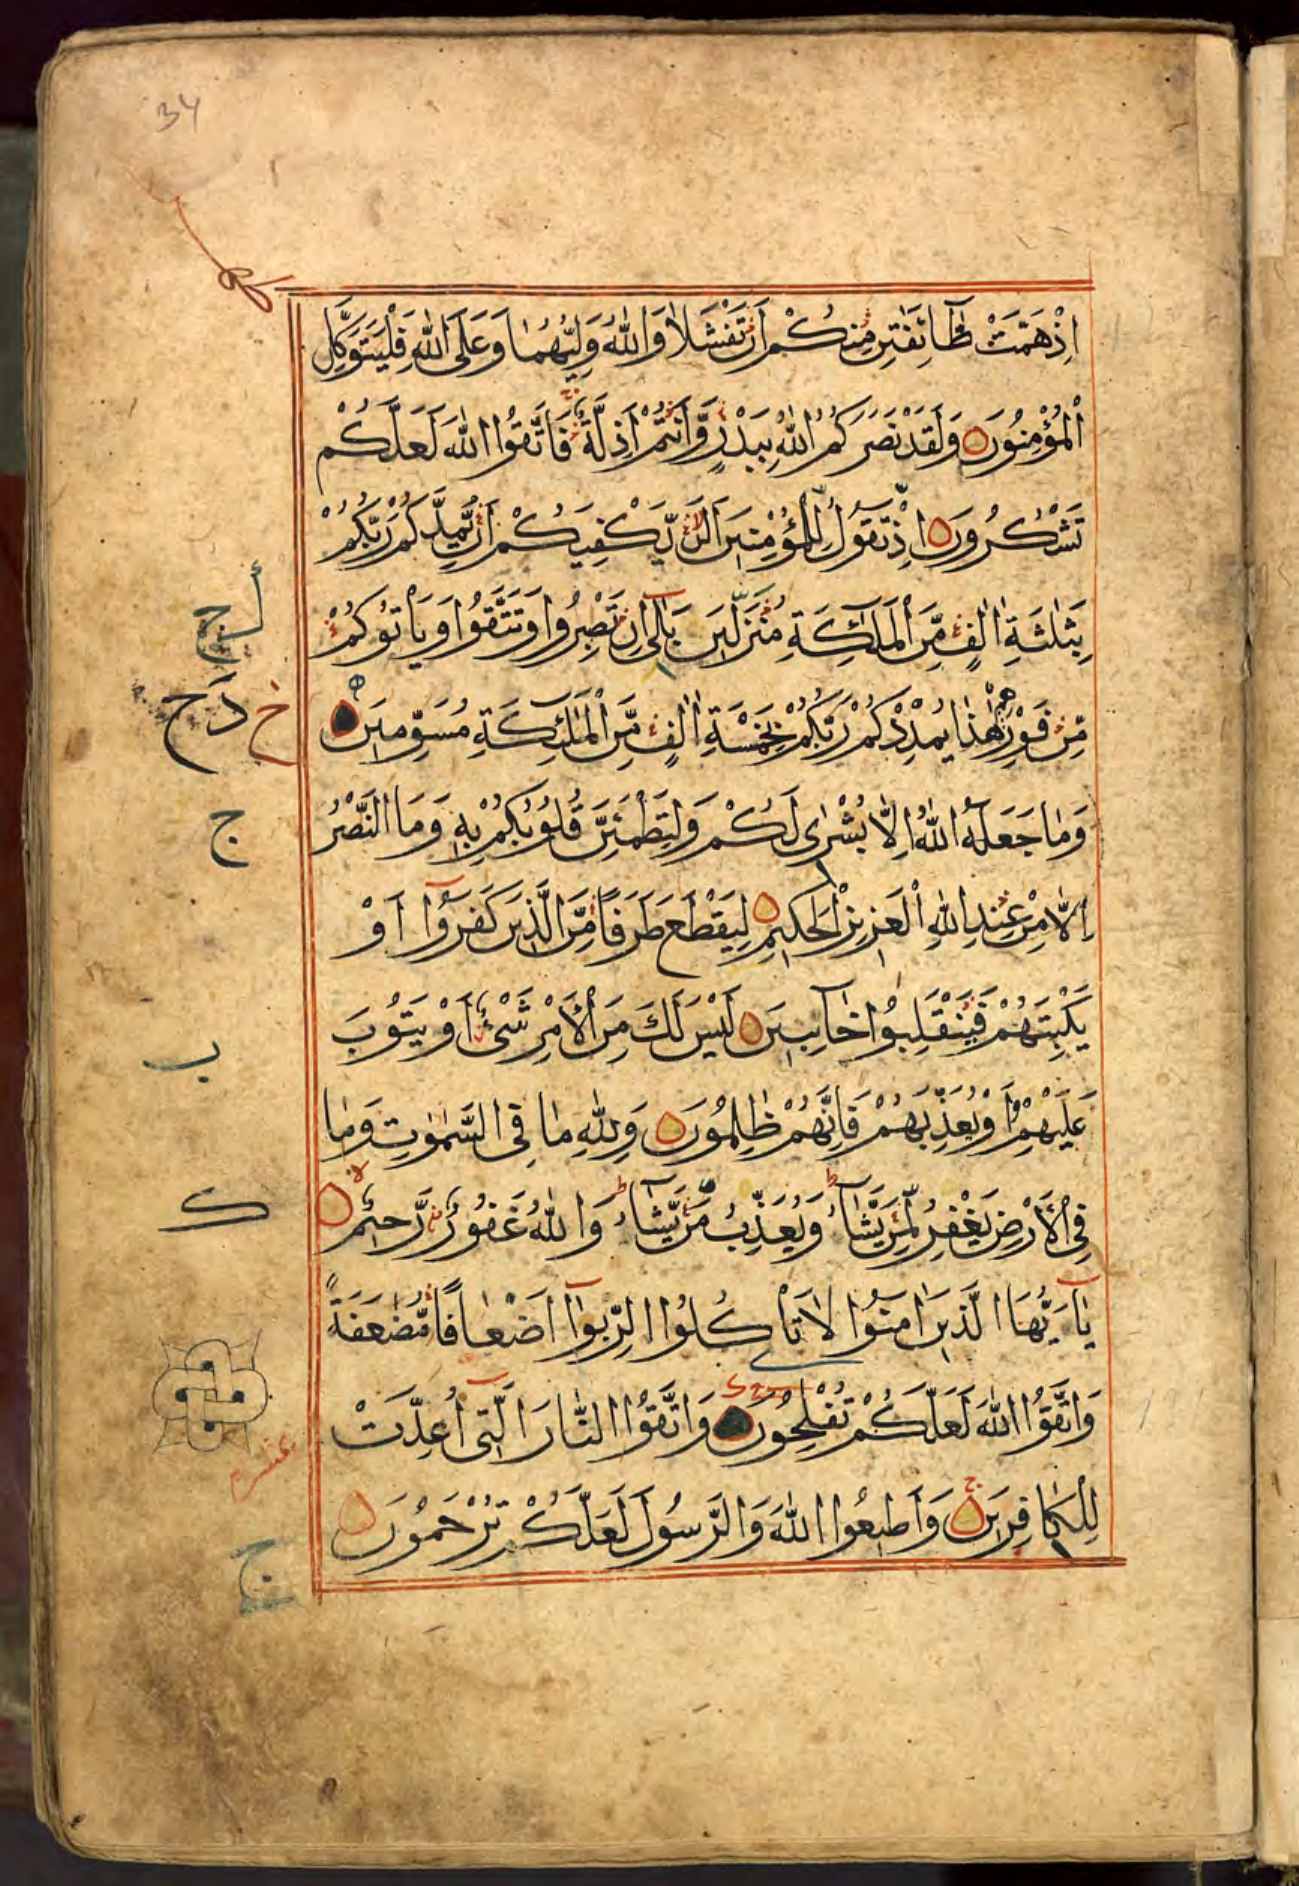 34
اِذْ هَمَّتْ طَآئِفَتٰنِ مِنْكُمْ اَنْ تَفْشَلَا وَاللّٰهُ وَلِيُّهُمَا وَعَلَى اللّٰهِ فَلْيَتَوَكَّلِ
الْمُؤْمِنُوْنَ وَلَقَدْ نَصَرَكُمُ اللّٰهُ بِبَدْرٍ وَّاَنْتُمْ اَذِلَّةٌ فَاتَّقُوا اللّٰهَ لَعَلَّكُمْ
تَشْكُرُوْنَ اِذْ تَقُوْلُ لِلْمُؤْمِنِيْنَ اَلَنْ يَّكْفِيَكُمْ اَنْ يُّمِدَّكُمْ رَبُّكُمْ
بِثَلٰثَةِ اٰلٰفٍ مِّنَ الْمَلٰٓئِكَةِ مُنْزَلِيْنَ بَلٰٓى اِنْ تَصْبِرُوْا وَتَتَّقُوْا وَيَاْتُوْكُمْ
مِّنْ فَوْرِهِمْ هٰذَا يُمْدِدْكُمْ رَبُّكُمْ بِخَمْسَةِ اٰلٰفٍ مِّنَ الْمَلٰٓئِكَةِ مُسَوِّمِيْنَ
وَمَا جَعَلَهُ اللّٰهُ اِلَّا بُشْرٰى لَكُمْ وَلِتَطْمَئِنَّ قُلُوْبُكُمْ بِهٖ وَمَا النَّصْرُ
اِلَّا مِنْ عِنْدِ اللّٰهِ الْعَزِيْزِ الْحَكِيْمِ لِيَقْطَعَ طَرَفًا مِّنَ الَّذِيْنَ كَفَرُوْٓا اَوْ
يَكْبِتَهُمْ فَيَنْقَلِبُوْا خَآئِبِيْنَ لَيْسَ لَكَ مِنَ الْاَمْرِ شَيْءٌ اَوْ يَتُوْبَ
عَلَيْهِمْ اَوْ يُعَذِّبَهُمْ فَاِنَّهُمْ ظٰلِمُوْنَ وَلِلّٰهِ مَا فِى السَّمٰوٰتِ وَمَا
فِى الْاَرْضِ يَغْفِرُ لِمَنْ يَّشَآءُ وَيُعَذِّبُ مَنْ يَّشَآءُ وَاللّٰهُ غَفُوْرٌ رَّحِيْمٌ
يٰٓاَيُّهَا الَّذِيْنَ اٰمَنُوْا لَا تَاْكُلُوا الرِّبٰوٓا اَضْعَافًا مُّضٰعَفَةً
وَاتَّقُوا اللّٰهَ لَعَلَّكُمْ تُفْلِحُوْنَ وَاتَّقُوا النَّارَ الَّتِىْٓ اُعِدَّتْ
لِلْكَافِرِيْنَ وَاَطِيْعُوا اللّٰهَ وَالرَّسُوْلَ لَعَلَّكُمْ تُرْحَمُوْنَ
ج
ب
ك
ج